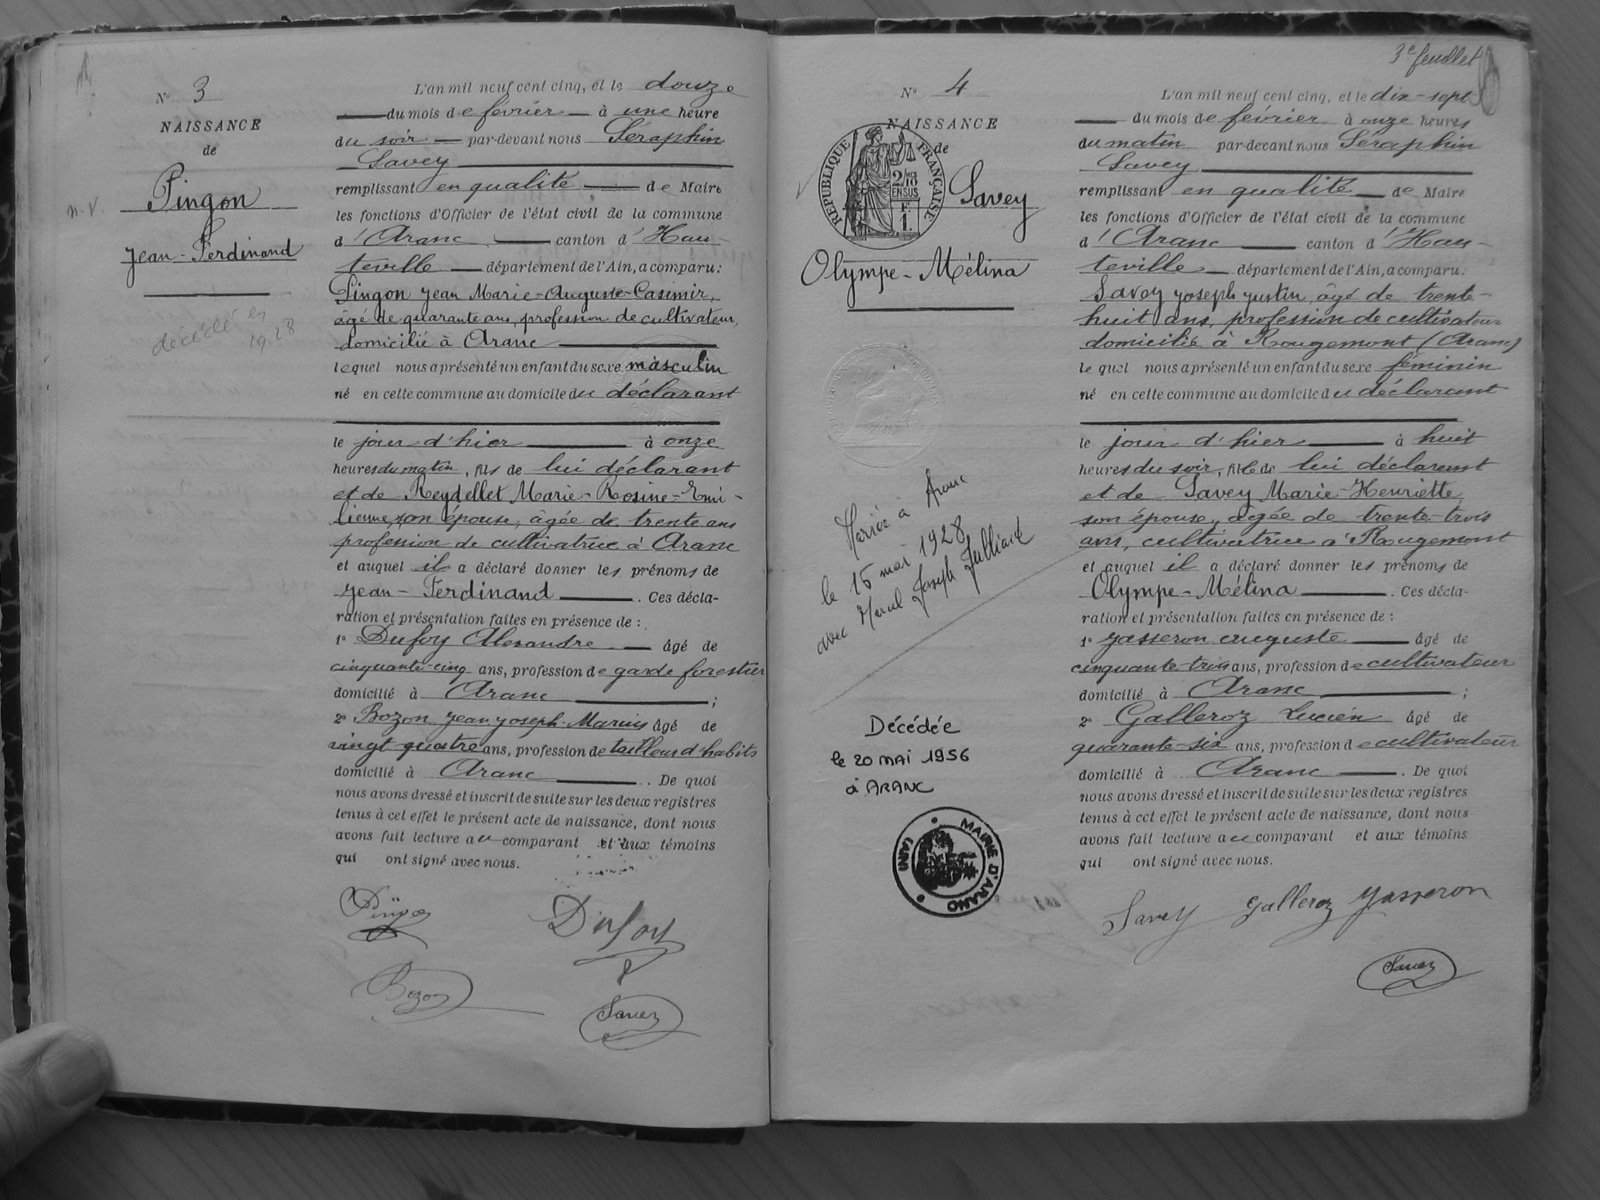 N° 3
NAISSANCE
de
Pingon
n.v.
Jean-Ferdinand
décédé en
1928
L'an mil neuf cent cinq, et le douze
du mois de février à une heure
du soir par-devant nous Séraphin
Savey
remplissant en qualité de Maire
les fonctions d'Officier de l'état civil de la commune
d'Aranc canton d'Hau-
teville département de l'Ain, a comparu:
Pingon Jean Marie-Auguste-Casimir,
âgé de quarante ans, profession de cultivateur,
domicilié à Aranc
lequel nous a présenté un enfant du sexe masculin
né en cette commune au domicile du déclarant
le jour d'hier à onze
heures du matin, fils de lui déclarant
et de Reydellet Marie-Rosine-Emi-
lienne, son épouse, âgée de trente ans
profession de cultivatrice à Aranc
et auquel il a déclaré donner les prénoms de
Jean-Ferdinand . Ces décla-
ration et présentation faites en présence de :
1° Dufoy Alexandre âgé de
cinquante-cinq ans, profession de garde forestier
domicilié à Aranc ;
2° Bozon Jean Joseph-Marius âgé de
vingt quatre ans, profession de tailleur d'habits
domicilié à Aranc . De quoi
nous avons dressé et inscrit de suite sur les deux registres
tenus à cet effet le présent acte de naissance, dont nous
avons fait lecture au comparant et aux témoins
qui ont signé avec nous.
Pingon
Dufoy
Bozon
Savey
3e feuillet
N° 4
NAISSANCE
de
RÉPUBLIQUE FRANÇAISE
2/10
EN SUS
F.
1.
Savey
Olympe-Mélina
Mariée à Aranc
le 15 mai 1928
avec Marcel Joseph Julliard
Décédée
le 20 MAI 1956
à ARANC
MAIRIE D'ARANC
(AIN)
L'an mil neuf cent cinq, et le dix-sept
du mois de février à onze heures
du matin par-devant nous Séraphin
Savey
remplissant en qualité de Maire
les fonctions d'Officier de l'état civil de la commune
d'Aranc canton d'Hau-
teville département de l'Ain, a comparu:
Savey Joseph Justin, âgé de trente-
huit ans, profession de cultivateur
domicilié à Rougemont (Aranc)
lequel nous a présenté un enfant du sexe féminin
né en cette commune au domicile du déclarant
le jour d'hier à huit
heures du soir, fille de lui déclarant
et de Savey Marie-Henriette
son épouse, âgée de trente-trois
ans, cultivatrice à Rougemont
et auquel il a déclaré donner les prénoms de
Olympe-Mélina . Ces décla-
ration et présentation faites en présence de :
1° Jasseron Auguste âgé de
cinquante trois ans, profession de cultivateur
domicilié à Aranc ;
2° Galleroz Lucien âgé de
quarante-six ans, profession de cultivateur
domicilié à Aranc . De quoi
nous avons dressé et inscrit de suite sur les deux registres
tenus à cet effet le présent acte de naissance, dont nous
avons fait lecture au comparant et aux témoins
qui ont signé avec nous.
Savey Galleroz Jasseron
Savey